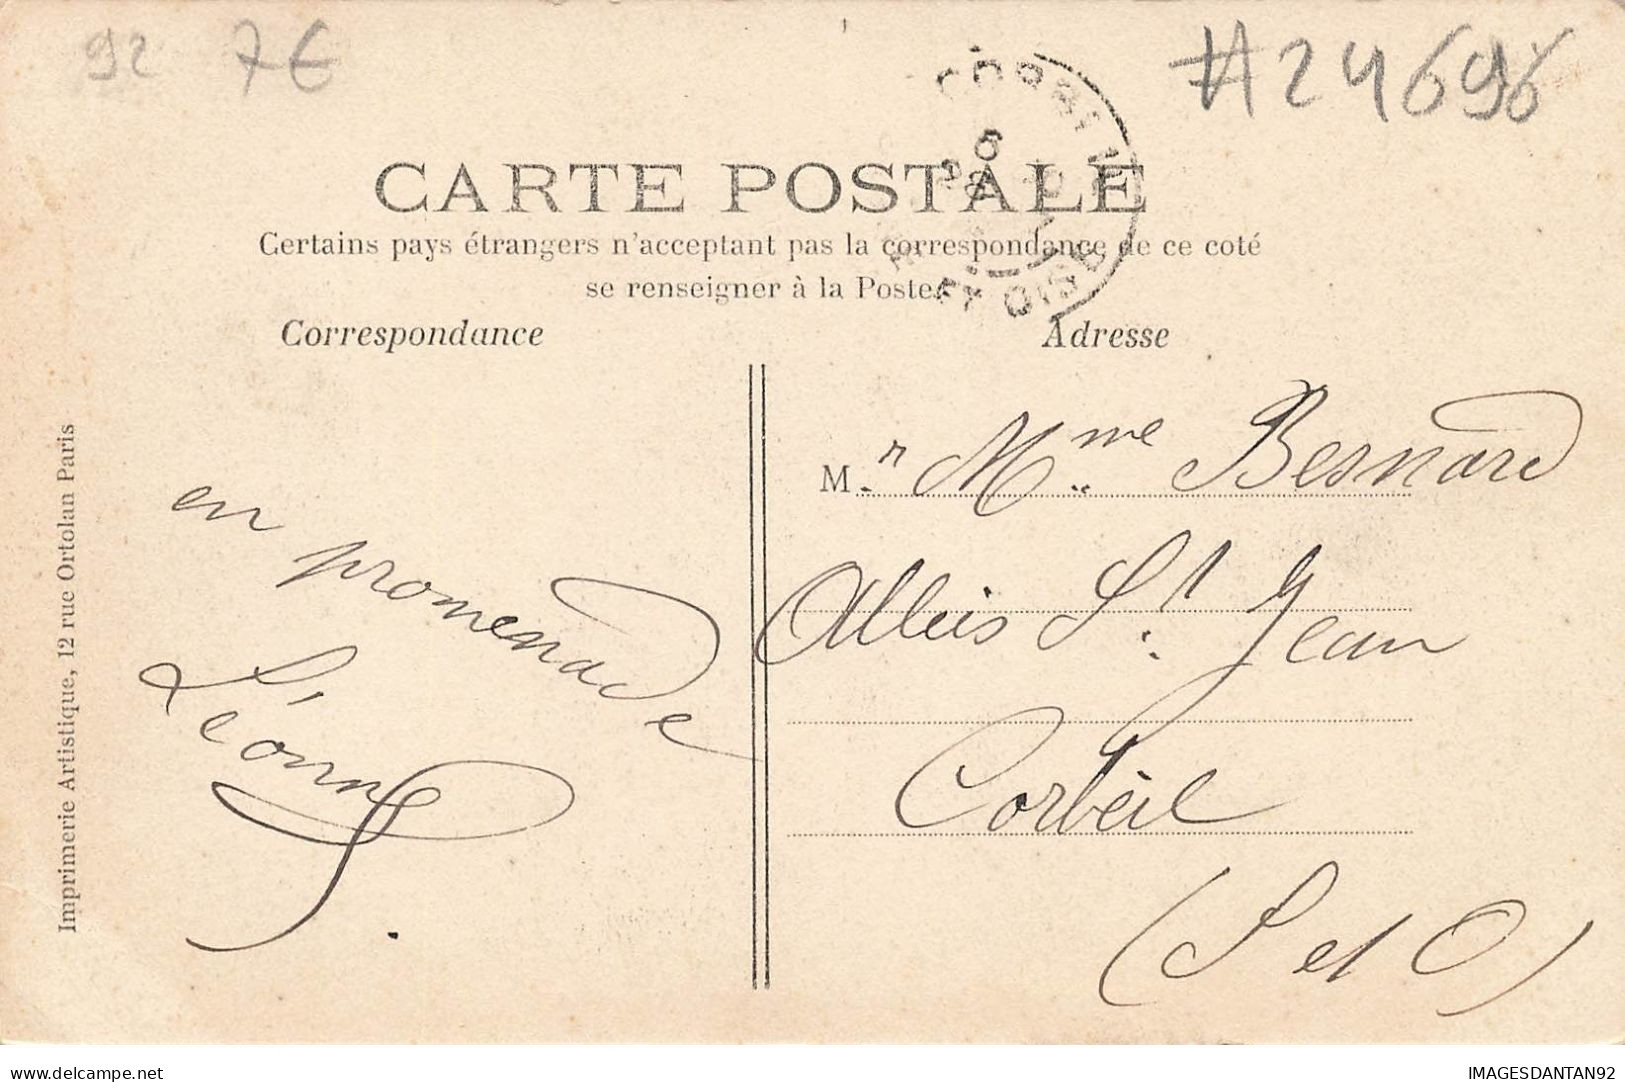 92 7€
#24696
CARTE POSTALE
Certains pays étrangers n'acceptant pas la correspondance de ce coté
se renseigner à la Poste.
Correspondance
Adresse
Imprimerie Artistique, 12 rue Ortolan Paris
en promenade
Léonie
M.r Mme Besnard
Alleis St Jean
Corbeil
(S et O)
ET OISE
delcampe.net
IMAGESDANTAN92